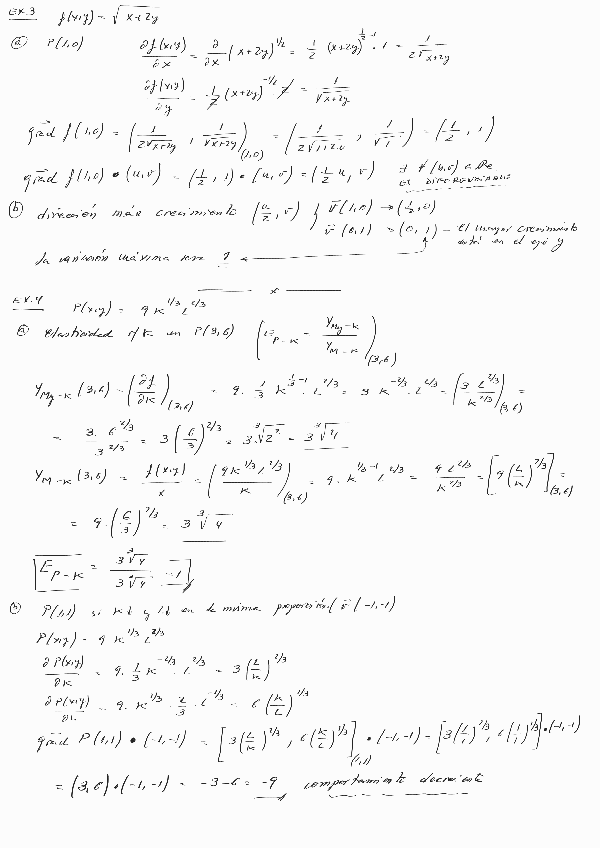 Ex.3 f(x,y) = √x+2y
(a) P(1,0) ∂f(x,y)/∂x = ∂/∂x (x+2y)^1/2 = 1/2 (x+2y)^1/2-1 · 1 = 1/2√x+2y
∂f(x,y)/∂y = 1/2 (x+2y)^-1/2 · 2 = 1/√x+2y
grad f(1,0) = (1/2√x+2y , 1/√x+2y)(1,0) = (1/2√1+2·0 , 1/√1) = (1/2, 1)
grad f(1,0) • (u,v) = (1/2, 1) • (u,v) = (1/2 u, v)
ES DIFERENCIABLE
(b) dirección máx crecimiento (u/2, v) } v(1,0) → (1/2,0)
v(0,1) → (0,1) – el mayor crecimiento
está en el eje y
La variación máxima sera 1
x
Ex.4 P(x,y) = 9 K^1/3 L^2/3
(a) elasticidad r/K en P(3,6) (E P-K = Y Mg-K / Y M-K)(3,6)
Y Mg-K (3,6) = (∂f/∂K)(3,6) = 9 · 1/3 K^1/3-1 · L^2/3 = 3 K^-2/3 · L^2/3 = (3 L^2/3 / K^2/3)(3,6) =
= 3·6^2/3 / 3^2/3 = 3 (6/3)^2/3 = 3 ∛2² = 3 ∛4
Y M-K (3,6) = f(x,y)/x = (9K^1/3 L^2/3 / K)(3,6) = 9 · K^1/3-1 · L^2/3 = 9 L^2/3 / K^2/3 = [9 (L/K)^2/3](3,6) =
= 9 · (6/3)^2/3 = 3 ∛4
E P-K = 3∛4 / 3∛4 = 1
(b) P(1,1) si K↓ y L↓ en la misma proporción. ( v (-1,-1)
P(x,y) = 9 K^1/3 L^2/3
∂P(x,y)/∂K = 9 · 1/3 K^-2/3 · L^2/3 = 3 (L/K)^2/3
∂P(x,y)/∂K = 9 · K^1/3 · 2/3 · L^-1/3 = 6 (K/L)^1/3
grad P(1,1) • (-1,-1) = [3 (L/K)^2/3 , 6 (K/L)^1/3](1,1) • (-1,-1) = [3 (1/1)^2/3 , 6 (1/1)^1/3] • (-1,-1)
= (3,6) • (-1,-1) = -3-6 = -9 comportamiento decreciente